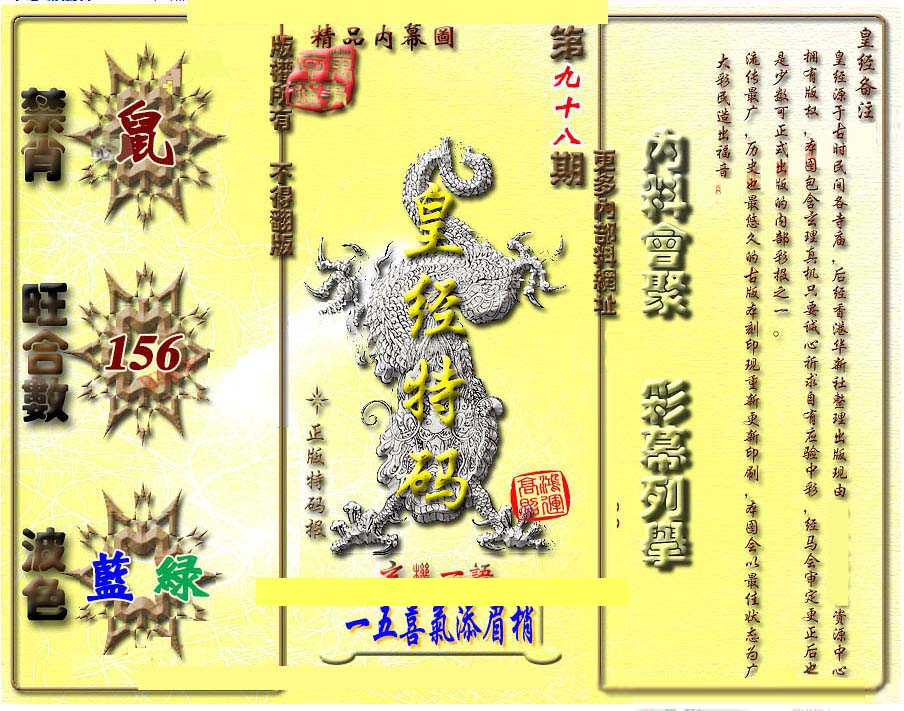 禁肖
鼠
旺合數
156
波色
藍 綠
版權所有 不得翻版
精品内幕圖
第九十八期
皇经特码
正版特码报
鴻運高照
一五喜氣添眉梢
更多內部料網址
内料會聚
彩幕列學
皇经备注
皇经源于古时民间各寺庙,后经香港华新社整理出版现由 资源中心
拥有版权,本图包含玄理真机只要诚心祈求自有应验中彩,经马会审定更正后也
是少数可正式出版的内部彩报之一。
流传最广,历史也最悠久的古版本刻印现重新更新印刷,本图会以最佳状态为广
大彩民造出福音